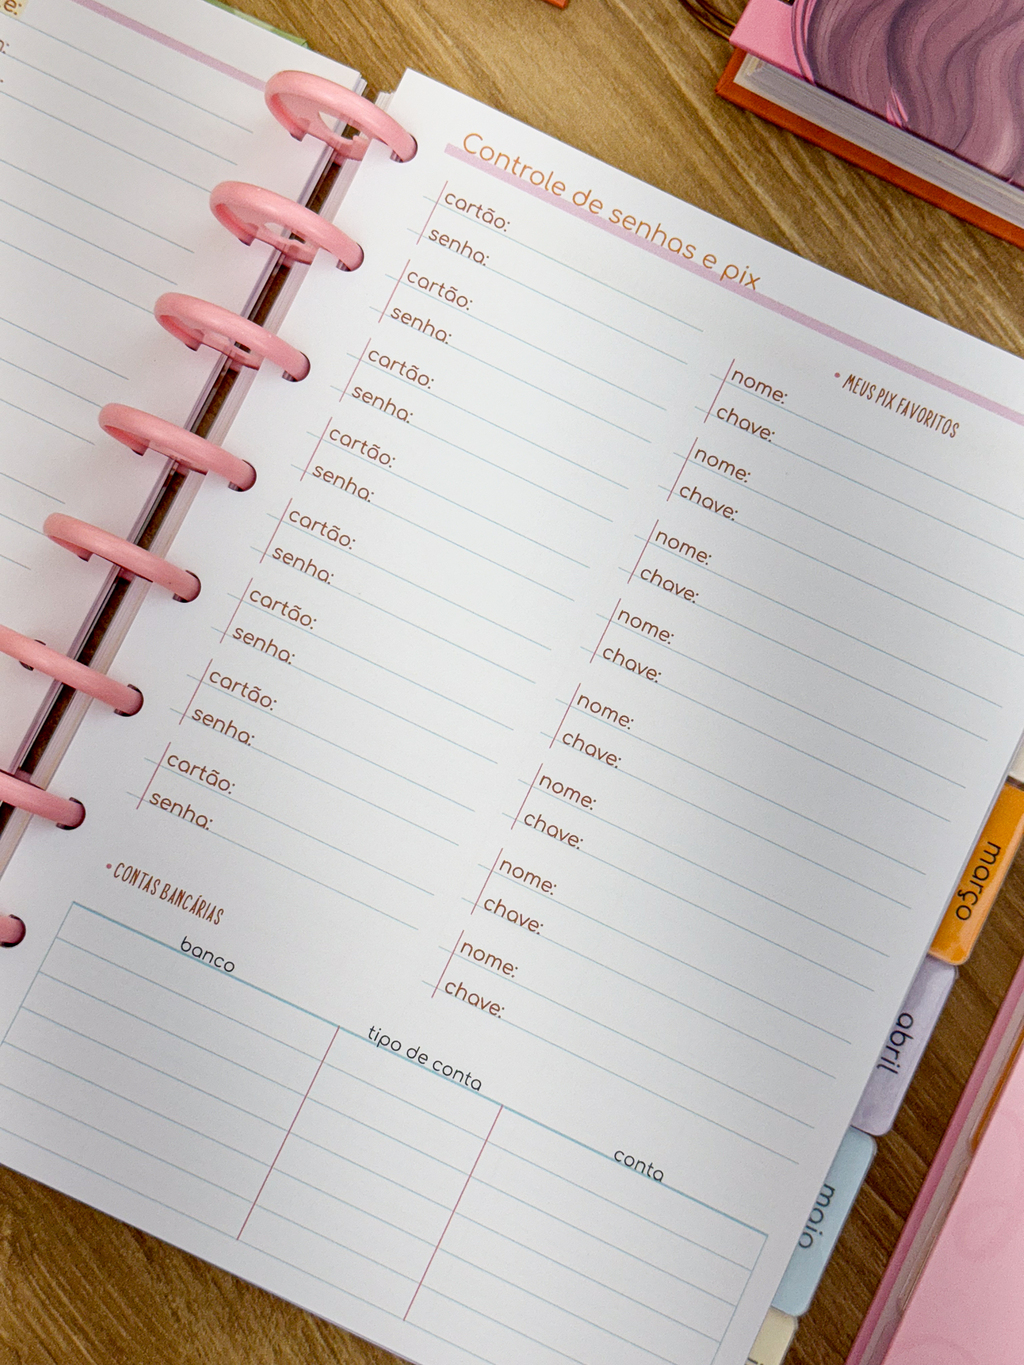 Controle de senhas e pix
cartão:
senha:
cartão:
senha:
cartão:
senha:
cartão:
senha:
cartão:
senha:
cartão:
senha:
cartão:
senha:
cartão:
senha:
• MEUS PIX FAVORITOS
nome:
chave:
nome:
chave:
nome:
chave:
nome:
chave:
nome:
chave:
nome:
chave:
nome:
chave:
nome:
chave:
• CONTAS BANCÁRIAS
banco
tipo de conta
conta
março
abril
maio